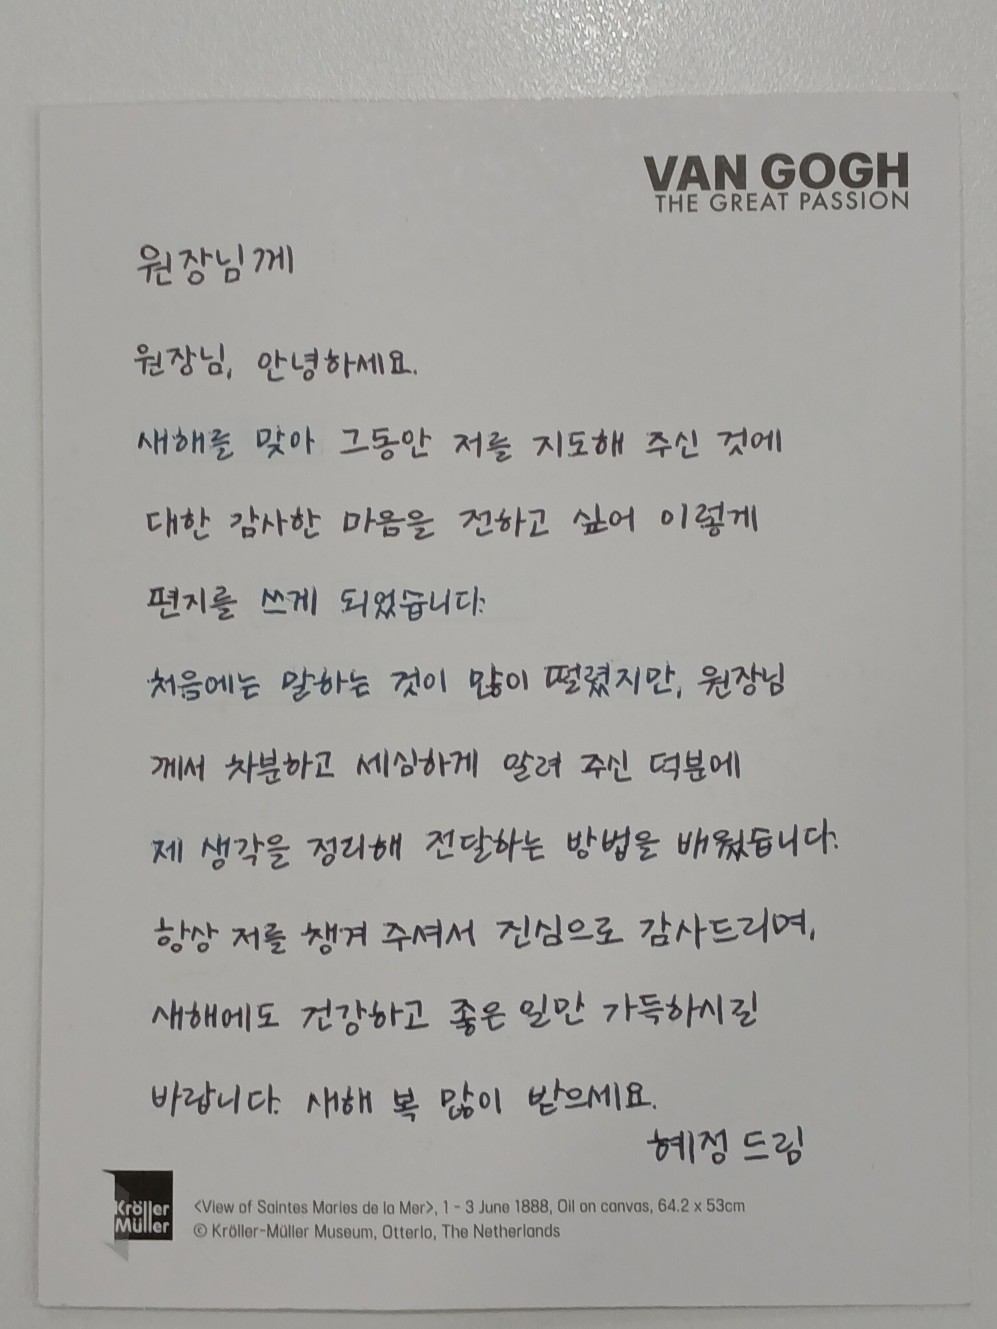 VAN GOGH
THE GREAT PASSION
원장님께
원장님, 안녕하세요.
새해를 맞아 그동안 저를 지도해 주신 것에
대한 감사한 마음을 전하고 싶어 이렇게
편지를 쓰게 되었습니다.
처음에는 말하는 것이 많이 떨렸지만, 원장님
께서 차분하고 세심하게 알려 주신 덕분에
제 생각을 정리해 전달하는 방법을 배웠습니다.
항상 저를 챙겨 주셔서 진심으로 감사드리며,
새해에도 건강하고 좋은 일만 가득하시길
바랍니다. 새해 복 많이 받으세요.
혜정 드림
Kröller
Müller
<View of Saintes Maries de la Mer>, 1 - 3 June 1888, Oil on canvas, 64.2 x 53cm
© Kröller-Müller Museum, Otterlo, The Netherlands